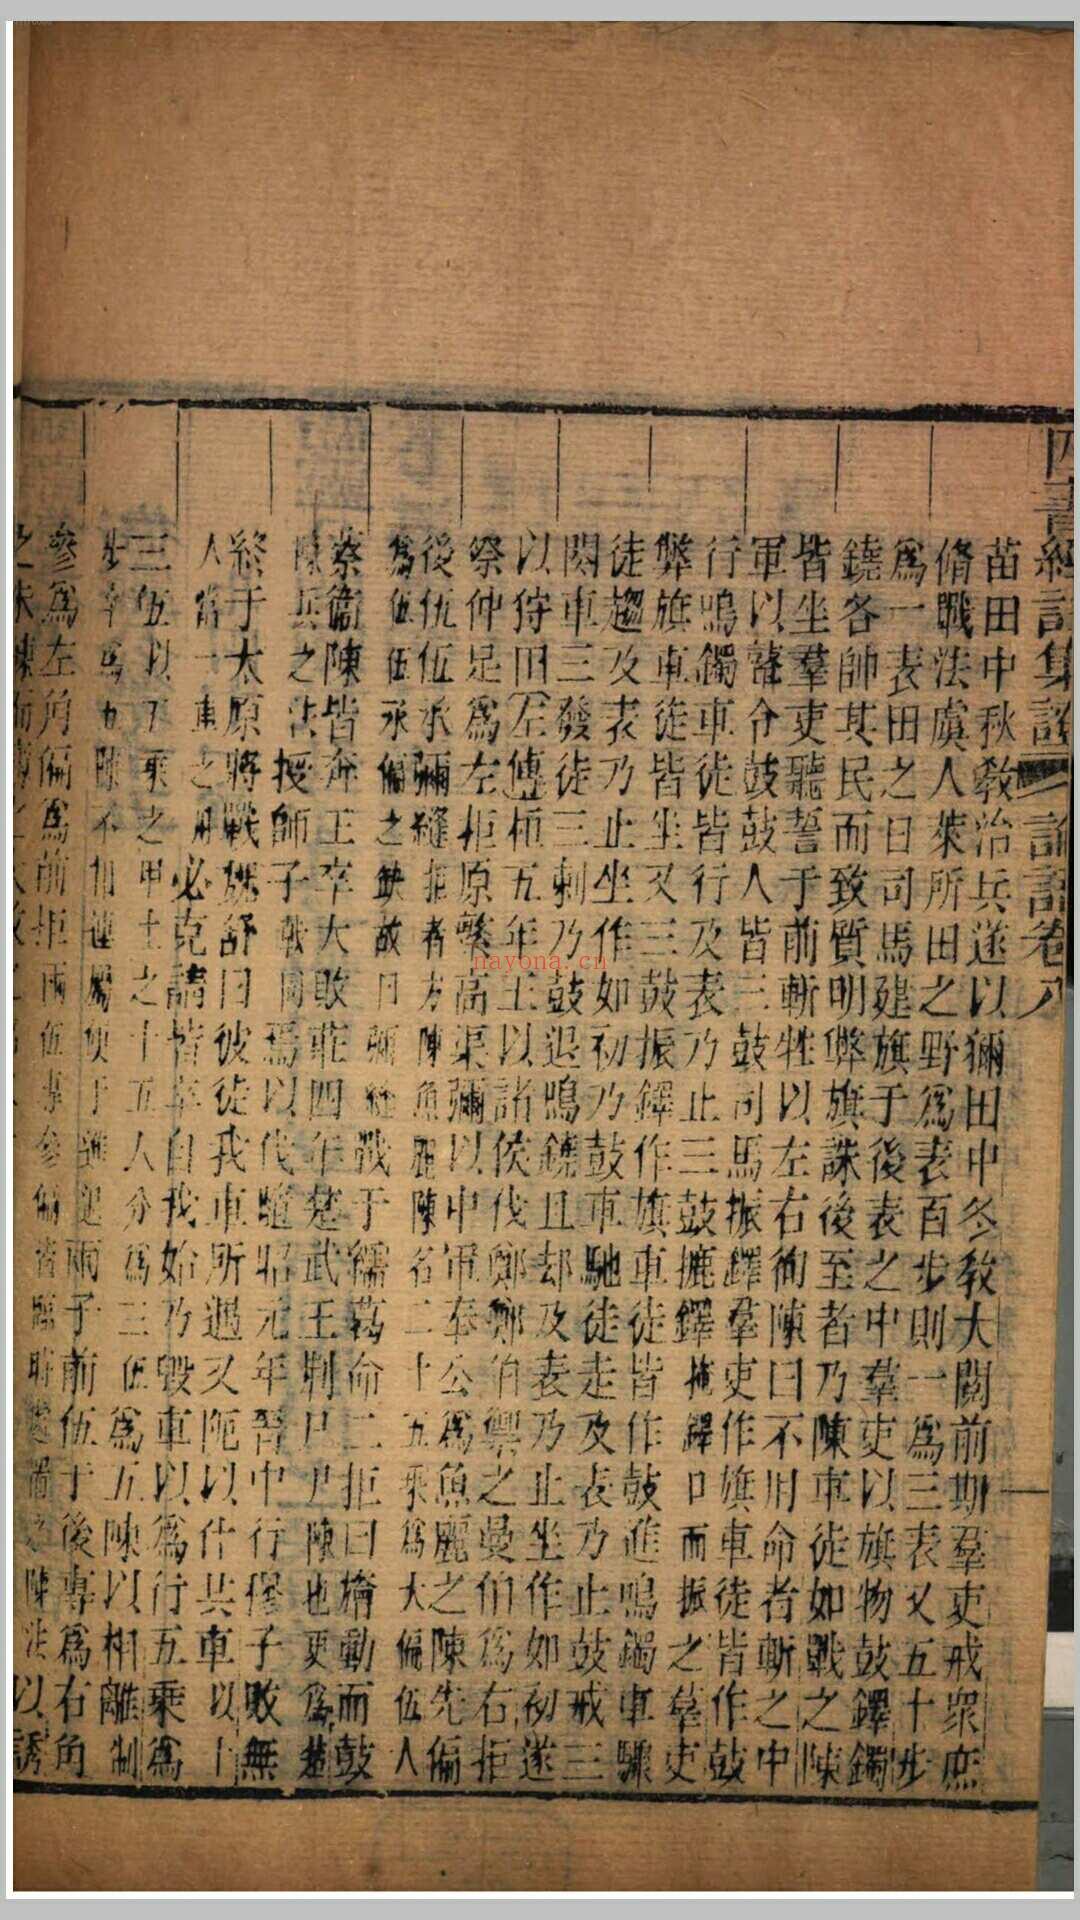 四書經註集證 論語卷八
苗田中秋教治兵遂以獮田中冬教大閱前期羣吏戒衆庶
脩戰法虞人萊所田之野爲表百步則一爲三表又五十步
爲一表田之日司馬建旗于後表之中羣吏以旗物鼓鐸鐲
鐃各帥其民而致質明弊旗誅後至者乃陳車徒如戰之陳
皆坐羣吏聽誓于前斬牲以左右徇陳曰不用命者斬之中
軍以鼙令鼓鼓人皆三鼓司馬振鐸羣吏作旗車徒皆作鼓
行鳴鐲車徒皆行及表乃止三鼓摝鐸掩鐸口而振之羣吏
弊旗車徒皆坐又三鼓振鐸作旗車徒皆作鼓進鳴鐲車驟
徒趨及表乃止坐作如初乃鼓車馳徒走及表乃止鼓戒三
闋車三發徒三刺乃鼓退鳴鐃且却及表乃止坐作如初遂
以狩田左傳桓五年王以諸侯伐鄭鄭伯禦之曼伯爲右拒
祭仲足爲左拒原繁高渠彌以中軍奉公爲魚麗之陳先偏
後伍伍承彌縫拒者方陳魚麗陳名二十五乘爲大偏伍人
爲伍伍承偏之缺故曰彌縫戰于繻葛命二拒曰旝動而鼓
蔡衞陳皆奔王卒大敗莊四年楚武王荆尸尸陳也更爲楚
陳兵之法授師孑戟同焉以伐隨昭元年晉中行穆子敗無
終于太原將戰魏舒曰彼徒我車所遇又阨以什共車以十
人當一車之用必克請皆卒自我始乃毀車以爲行五乘爲
三伍以五乘之甲士之十五人分爲三伍爲五陳以相離制
步卒爲五陳不相連屬使于進退兩于前伍于後專爲右角
參爲左角偏爲前拒兩伍專參偏皆臨時處置之陳法以誘